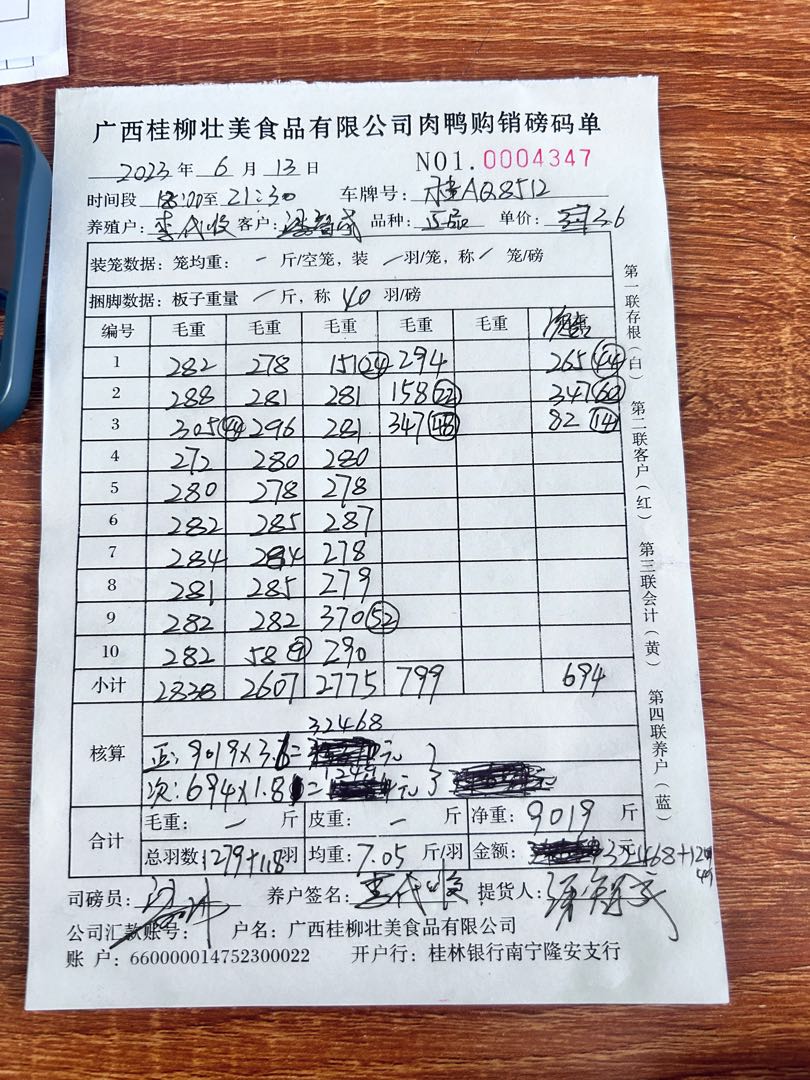 广西桂柳壮美食品有限公司肉鸭购销磅码单
2023 年 6 月 13 日 NO1.0004347
时间段 18:00 至 21:30 车牌号: 桂AQ8512
养殖户: 李代收 客户: 品种: 正品 单价: 3.6
装笼数据: 笼均重: 一 斤/空笼, 装 一 羽/笼, 称 / 笼/磅
捆脚数据: 板子重量 一 斤, 称 40 羽/磅
编号 毛重 毛重 毛重 毛重 毛重
1 282 278 151 24 294 265 44
2 288 281 281 158 22 347 60
3 305 44 296 281 347 48 82 14
4 272 280 280
5 280 278 278
6 282 285 287
7 284 284 278
8 281 285 279
9 282 282 370 52
10 282 58 9 290
小计 2838 2607 2775 799 694
核算
32468
正: 9019×3.6= 元
次: 694×1.8 = 元
合计 毛重: 一 斤 皮重: 一 斤 净重: 9019 斤
总羽数 1279+118 羽 均重: 7.05 斤/羽 金额: 32468+1249 元
司磅员: 养户签名: 李代收 提货人:
公司汇款账号: 户名: 广西桂柳壮美食品有限公司
账 户: 660000014752300022 开户行: 桂林银行南宁隆安支行
第一联存根(白) 第二联客户(红) 第三联会计(黄) 第四联养户(蓝)